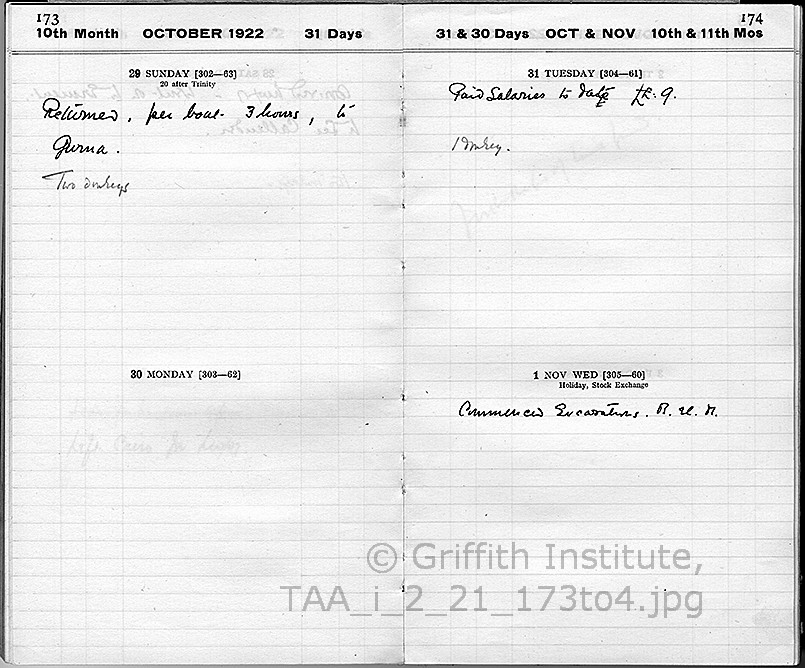 173
10th Month OCTOBER 1922 31 Days
29 SUNDAY [302—63]
20 after Trinity
Returned, per boat 3 hours, to
Gurna.
Two donkeys
30 MONDAY [303—62]
174
31 & 30 Days OCT & NOV 10th & 11th Mos
31 TUESDAY [304—61]
Paid Salaries to date £E. 9.
1 donkey.
1 NOV WED [305—60]
Holiday, Stock Exchange
Commenced Excavations.
© Griffith Institute,
TAA_i_2_21_173to4.jpg